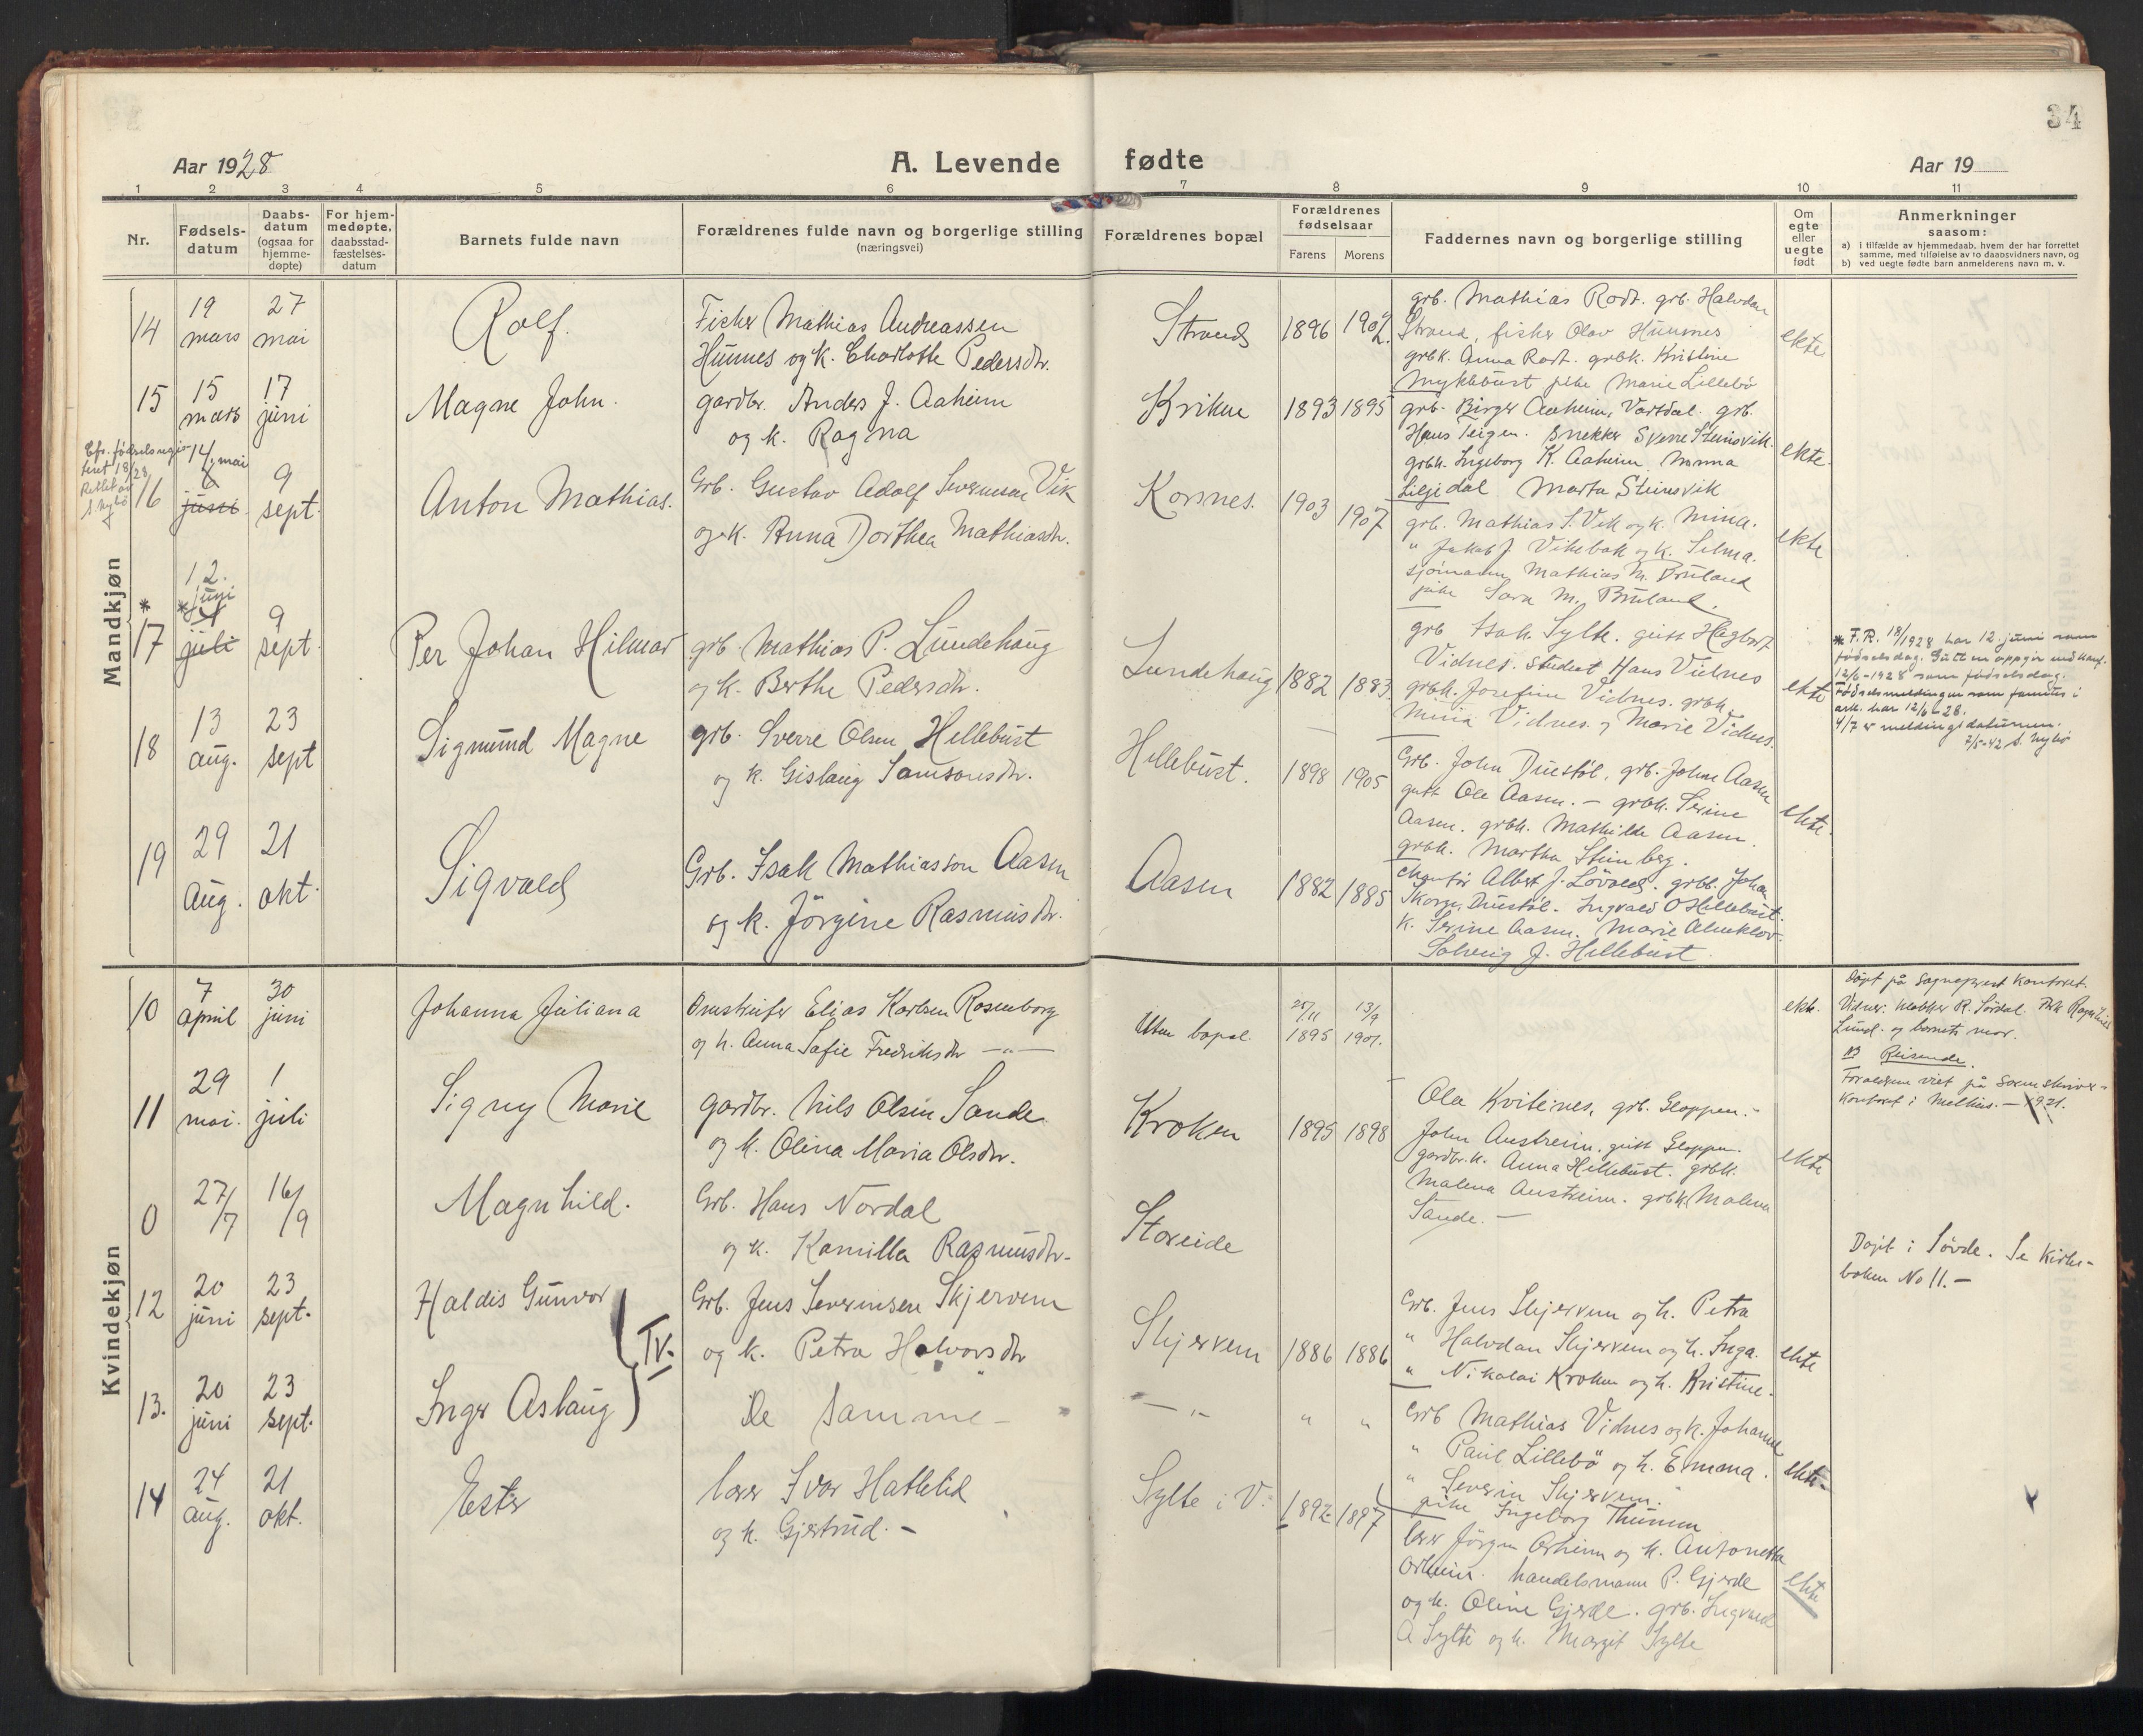 34
Aar 1928
A. Levende fødte
Aar 19
1 2 3 4 5 6 7 8 9 10 11
Nr.
Fødsels-
datum
Daabs-
datum
(ogsaa for
hjemme-
døpte)
For hjem-
medøpte,
daabsstad-
fæstelses-
datum
Barnets fulde navn
Forældrenes fulde navn og borgerlige stilling
(næringsvei)
Forældrenes bopæl
Forældrenes
fødselsaar
Farens Morens
Faddernes navn og borgerlige stilling
Om
egte
eller
uegte
født
Anmerkninger
saasom:
a) i tilfælde av hjemmedaab, hvem der har forrettet
samme, med tilføielse av to daabsvidners navn, og
b) ved uegte fødte barn anmelderens navn m. v.
Mandkjøn
14
19
mars
27
mai
Rolf.
Fisker Mathias Andreassen
Hunnes og k. Charlotte Pedersdtr.
Strand
1896 1902.
grb. Mathias Rodt. grb. Halvdan
Strand, fisker Olav Hunnes
grbk. Anna Rodt. grbk. Kristine
Myklebust pike Marie Lillebö
ekte
15
15
mars
17
juni
Magne John.
gardbr. Anders J. Aaheim
og k. Ragna
Kriken
1893 1895
grb. Birger Aaheim, Vartdal. grb.
Hans Teigen. snekker Sverre Steinsvik.
grbk. Ingeborg K. Aaheim
Liljedal Marta Steinsvik
ekte.
Cfr. fødselsregis-
teret 18/28
Rettet av
S. Nybö
16
14. mai
6
juni
9
sept.
Anton Mathias.
Grb. Gustav Adolf Severinsen Vik
og k. Anna Dorthea Mathiasdtr.
Korsnes.
1903 1907
grb. Mathias S. Vik og k. Mina.
" Jakob J. Vikebak og k. Selma.
sjömann Mathias M. Bruland
pike Sara M. Bruland.
ekte
*
17
12.
juni
* 4
juli
9
sept.
Per Johan Hilmar
grb. Mathias P. Lundehaug
og k. Berthe Pedersdtr.
Lundehaug
1882 1883
grb Isak Sylte. gutt Hagbart
Vidnes. Student Hans Vidnes
grbk. Josefine Vidnes. grbk.
Mina Vidnes. og Marie Vidnes.
ekte
* F.R. 18/1928 har 12. juni som
fødselsdag. Gutten oppgir ved konf.
12/6-1928 som fødselsdag.
Fødselsmeldingen som fannes i
ark. har 12/6-28.
4/7 er meldingsdatumen.
7/5-42 S. Nybö
18
13
aug.
23
sept
Sigmund Magne
grb. Sverre Olsen Hellebust
og k. Gislaug Samsonsdtr.
Hellebust.
1898 1905
Grb. John Duestöl, grb. Johne Aasen
gutt Ole Aasen. - grbk. Serine
Aasen. grbk. Mathilde Aasen.
grbk. Martha Steinberg.
ekte.
19
29
Aug.
21
okt.
Sigvald
Grb. Isak Mathiasson Aasen
og k. Jörgine Rasmusdtr.
Aasen
1882 1885
Albert J. Lövold. grbb. Johan
Skorge, Duestöl. Ingvald O Hellebust.
k. Serine Aasen. Marie Almklov.
Solveig J. Hellebust.
Kvindekjøn
10
7
april
30
juni
Johanna Juliana
Omstreifer Elias Karlsen Rosenborg
og k. Anna Sofie Fredriksdtr —"—
Uten bopel.
25/11
1895
13/9
1901.
ekte.
Döpt på Sogneprest Kontoret.
Vidner: Klokker R. Sördal. Frk Ragna
Lund. og barnets mor.
NB Reisende.
Foreldrene viet på Sorenskriver-
Kontoret i Melhus. — 1921.
11
29
mai.
1
juli
Signy Marie
Gardbr. Nils Olsen Sande
og k. Olina Maria Olsdtr.
Kroken
1895 1898
Ola Kvitenes, grb. Gloppen.
John Austreim, gutt Gloppen.
gardbr.k. Anna Hellebust. grbk.
Malena Austreim. grbk. Malena
Sande. —
ekte
0
27/7
16/9
Magnhild.
Grb. Hans Nordal
og k. Kamilla Rasmusdtr.
Storeide
Döpt i Sövde. Se Kirke-
boken No 11. —
12
20
juni
23
sept.
Haldis Gunvor
Tv.
Grb. Jens Severinsen Skjervem
og k. Petra Halvorsdtr
Skjervem
1886 1886
Grb. Jens Skjervem og k. Petra
" Halvdan Skjervem og k. Inga.
" Nikolai Kroken og k. Kristine.
ekte
13.
20
juni
23
sept.
Inger Aslaug
De samme —
— " —
" "
Grb Mathias Vidnes og k. Johanne
" Paul Lillebö og k. Emma.
" Severin Skjervem.
pike Ingeborg Thunem
ekte.
14
24
aug.
21
okt.
Ester
lærer Ivar Hatlelid
og k. Gjertrud. —
Sylte i V.
1892 1897
lærer Jörgen Orheim og k. Antonetta
Orheim. handelsmann P. Gjerde
og k. Oline Gjerde. grb. Ingvald
A Sylte og k. Margit Sylte
ekte